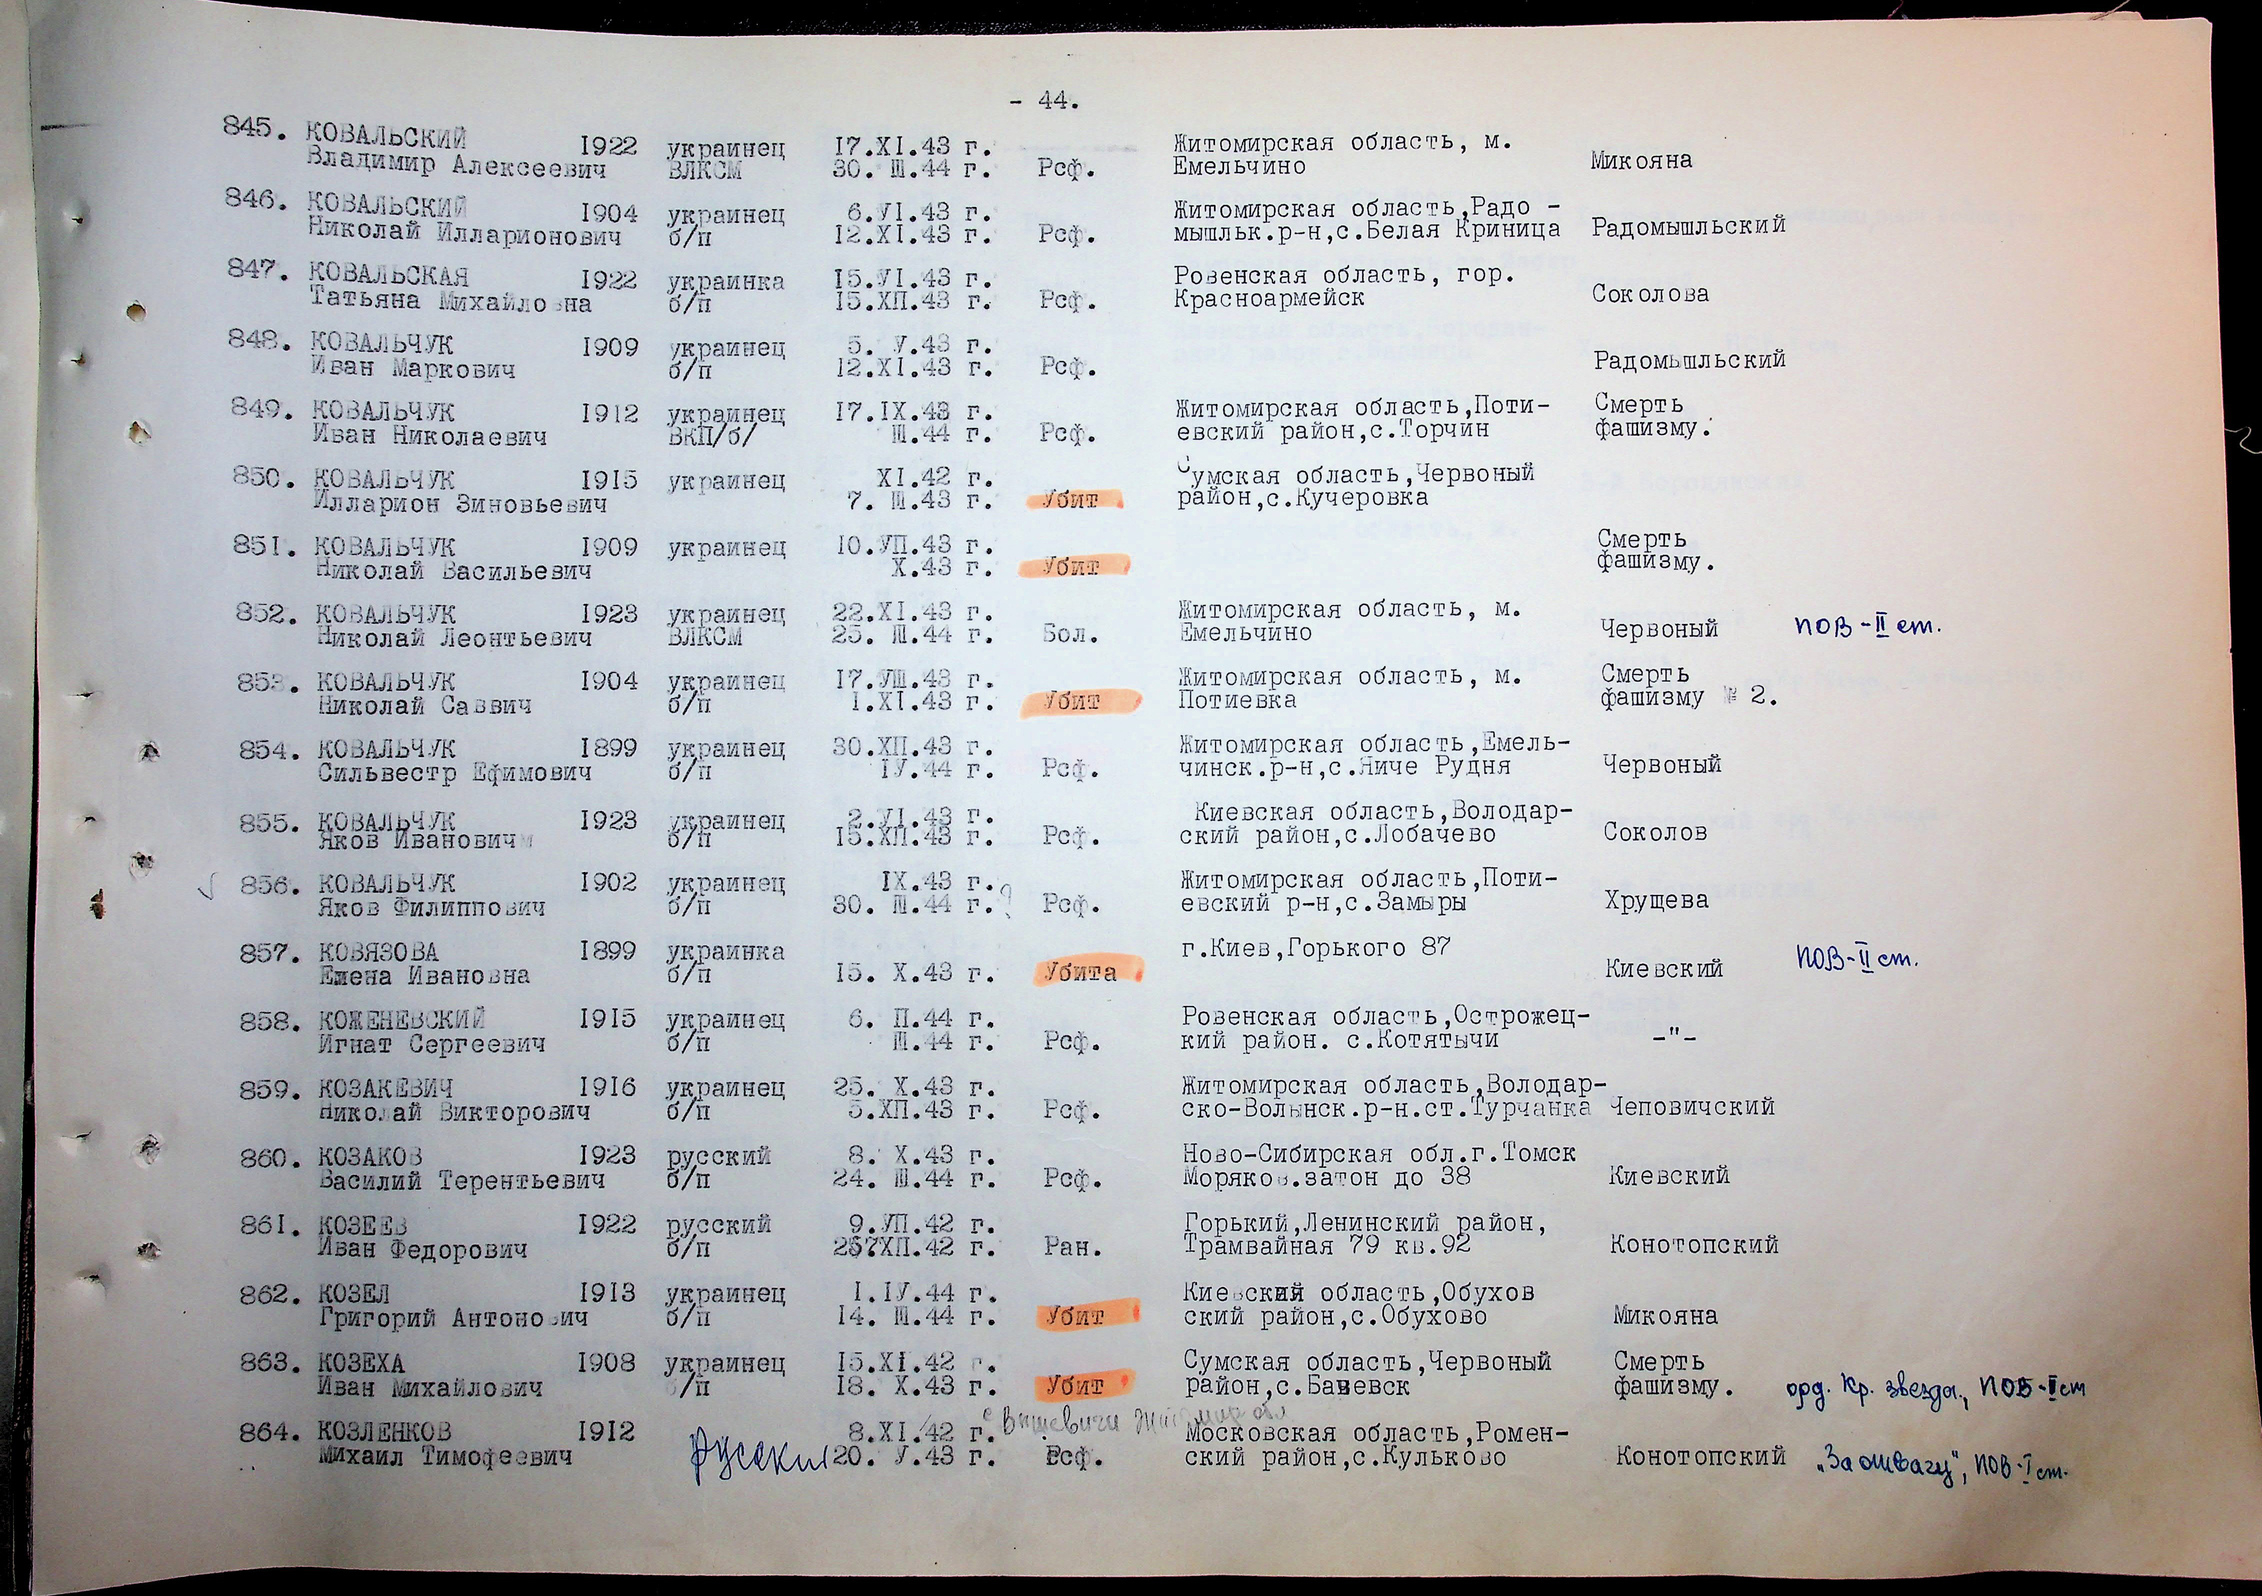 - 44.
845. КОВАЛЬСКИЙ 1922 украинец 17.XI.43 г. Житомирская область, м.
Владимир Алексеевич ВЛКСМ 30. Ш.44 г. Рсф. Емельчино Микояна
846. КОВАЛЬСКИЙ 1904 украинец 6.УI.43 г. Житомирская область,Радо -
Николай Илларионович б/п 12.XI.43 г. Рсф. мышльк.р-н,с.Белая Криница Радомышльский
847. КОВАЛЬСКАЯ 1922 украинка 15.УI.43 г. Ровенская область, гор.
Татьяна Михайловна б/п 15.ХП.43 г. Рсф. Красноармейск Соколова
848. КОВАЛЬЧУК 1909 украинец 5. У.43 г.
Иван Маркович б/п 12.XI.43 г. Рсф. Радомышльский
849. КОВАЛЬЧУК 1912 украинец 17.IX.43 г. Житомирская область,Поти- Смерть
Иван Николаевич ВКП/б/ Ш.44 г. Рсф. евский район,с.Торчин фашизму.
850. КОВАЛЬЧУК 1915 украинец XI.42 г. Сумская область,Червоный
Илларион Зиновьевич 7. Ш.43 г. Убит район,с.Кучеровка
851. КОВАЛЬЧУК 1909 украинец 10.УП.43 г. Смерть
Николай Васильевич X.43 г. Убит фашизму.
852. КОВАЛЬЧУК 1923 украинец 22.XI.43 г. Житомирская область, м.
Николай Леонтьевич ВЛКСМ 25. Ш.44 г. Бол. Емельчино Червоный ПОВ-II ст.
853. КОВАЛЬЧУК 1904 украинец 17.УШ.43 г. Житомирская область, м. Смерть
Николай Саввич б/п 1.XI.43 г. Убит Потиевка фашизму № 2.
854. КОВАЛЬЧУК 1899 украинец 30.ХП.43 г. Житомирская область,Емель-
Сильвестр Ефимович б/п IУ.44 г. Рсф. чинск.р-н,с.Яиче Рудня Червоный
855. КОВАЛЬЧУК 1923 украинец 2.УI.43 г. Киевская область,Володар-
Яков Иванович б/п 15.ХП.43 г. Рсф. ский район,с.Лобачево Соколов
856. КОВАЛЬЧУК 1902 украинец IX.43 г. Житомирская область,Поти-
Яков Филиппович б/п 30. Ш.44 г.? Рсф. евский р-н,с.Замыры Хрущева
857. КОВЯЗОВА 1899 украинка г.Киев,Горького 87
Елена Ивановна б/п 15. X.43 г. Убита Киевский ПОВ-II ст.
858. КОЖЕНЕВСКИЙ 1915 украинец 6. П.44 г. Ровенская область,Острожец-
Игнат Сергеевич б/п Ш.44 г. Рсф. кий район. с.Котятычи -"-
859. КОЗАКЕВИЧ 1916 украинец 25. X.43 г. Житомирская область,Володар-
Николай Викторович б/п 5.ХП.43 г. Рсф. ско-Волынск.р-н.ст.Турчанка Чеповичский
860. КОЗАКОВ 1923 русский 8. X.43 г. Ново-Сибирская обл.г.Томск
Василий Терентьевич б/п 24. Ш.44 г. Рсф. Моряков.затон до 38 Киевский
861. КОЗЕЕВ 1922 русский 9.УП.42 г. Горький,Ленинский район,
Иван Федорович б/п 25?ХП.42 г. Ран. Трамвайная 79 кв.92 Конотопский
862. КОЗЕЛ 1913 украинец 1.IУ.44 г. Киевский область,Обухов
Григорий Антонович б/п 14. Ш.44 г. Убит ский район,с.Обухово Микояна
863. КОЗЕХА 1908 украинец 15.XI.42 г. Сумская область,Червоный Смерть
Иван Михайлович б/п 18. X.43 г. Убит район,с.Бачевск фашизму. орд. Кр. звезда., ПОВ-II ст
с Вышевичи Житомир обл
864. КОЗЛЕНКОВ 1912 8.XI.42 г. Московская область,Ромен-
Михаил Тимофеевич русский 20. У.43 г. Рсф. ский район,с.Кульково Конотопский „За отвагу", ПОВ-I ст.